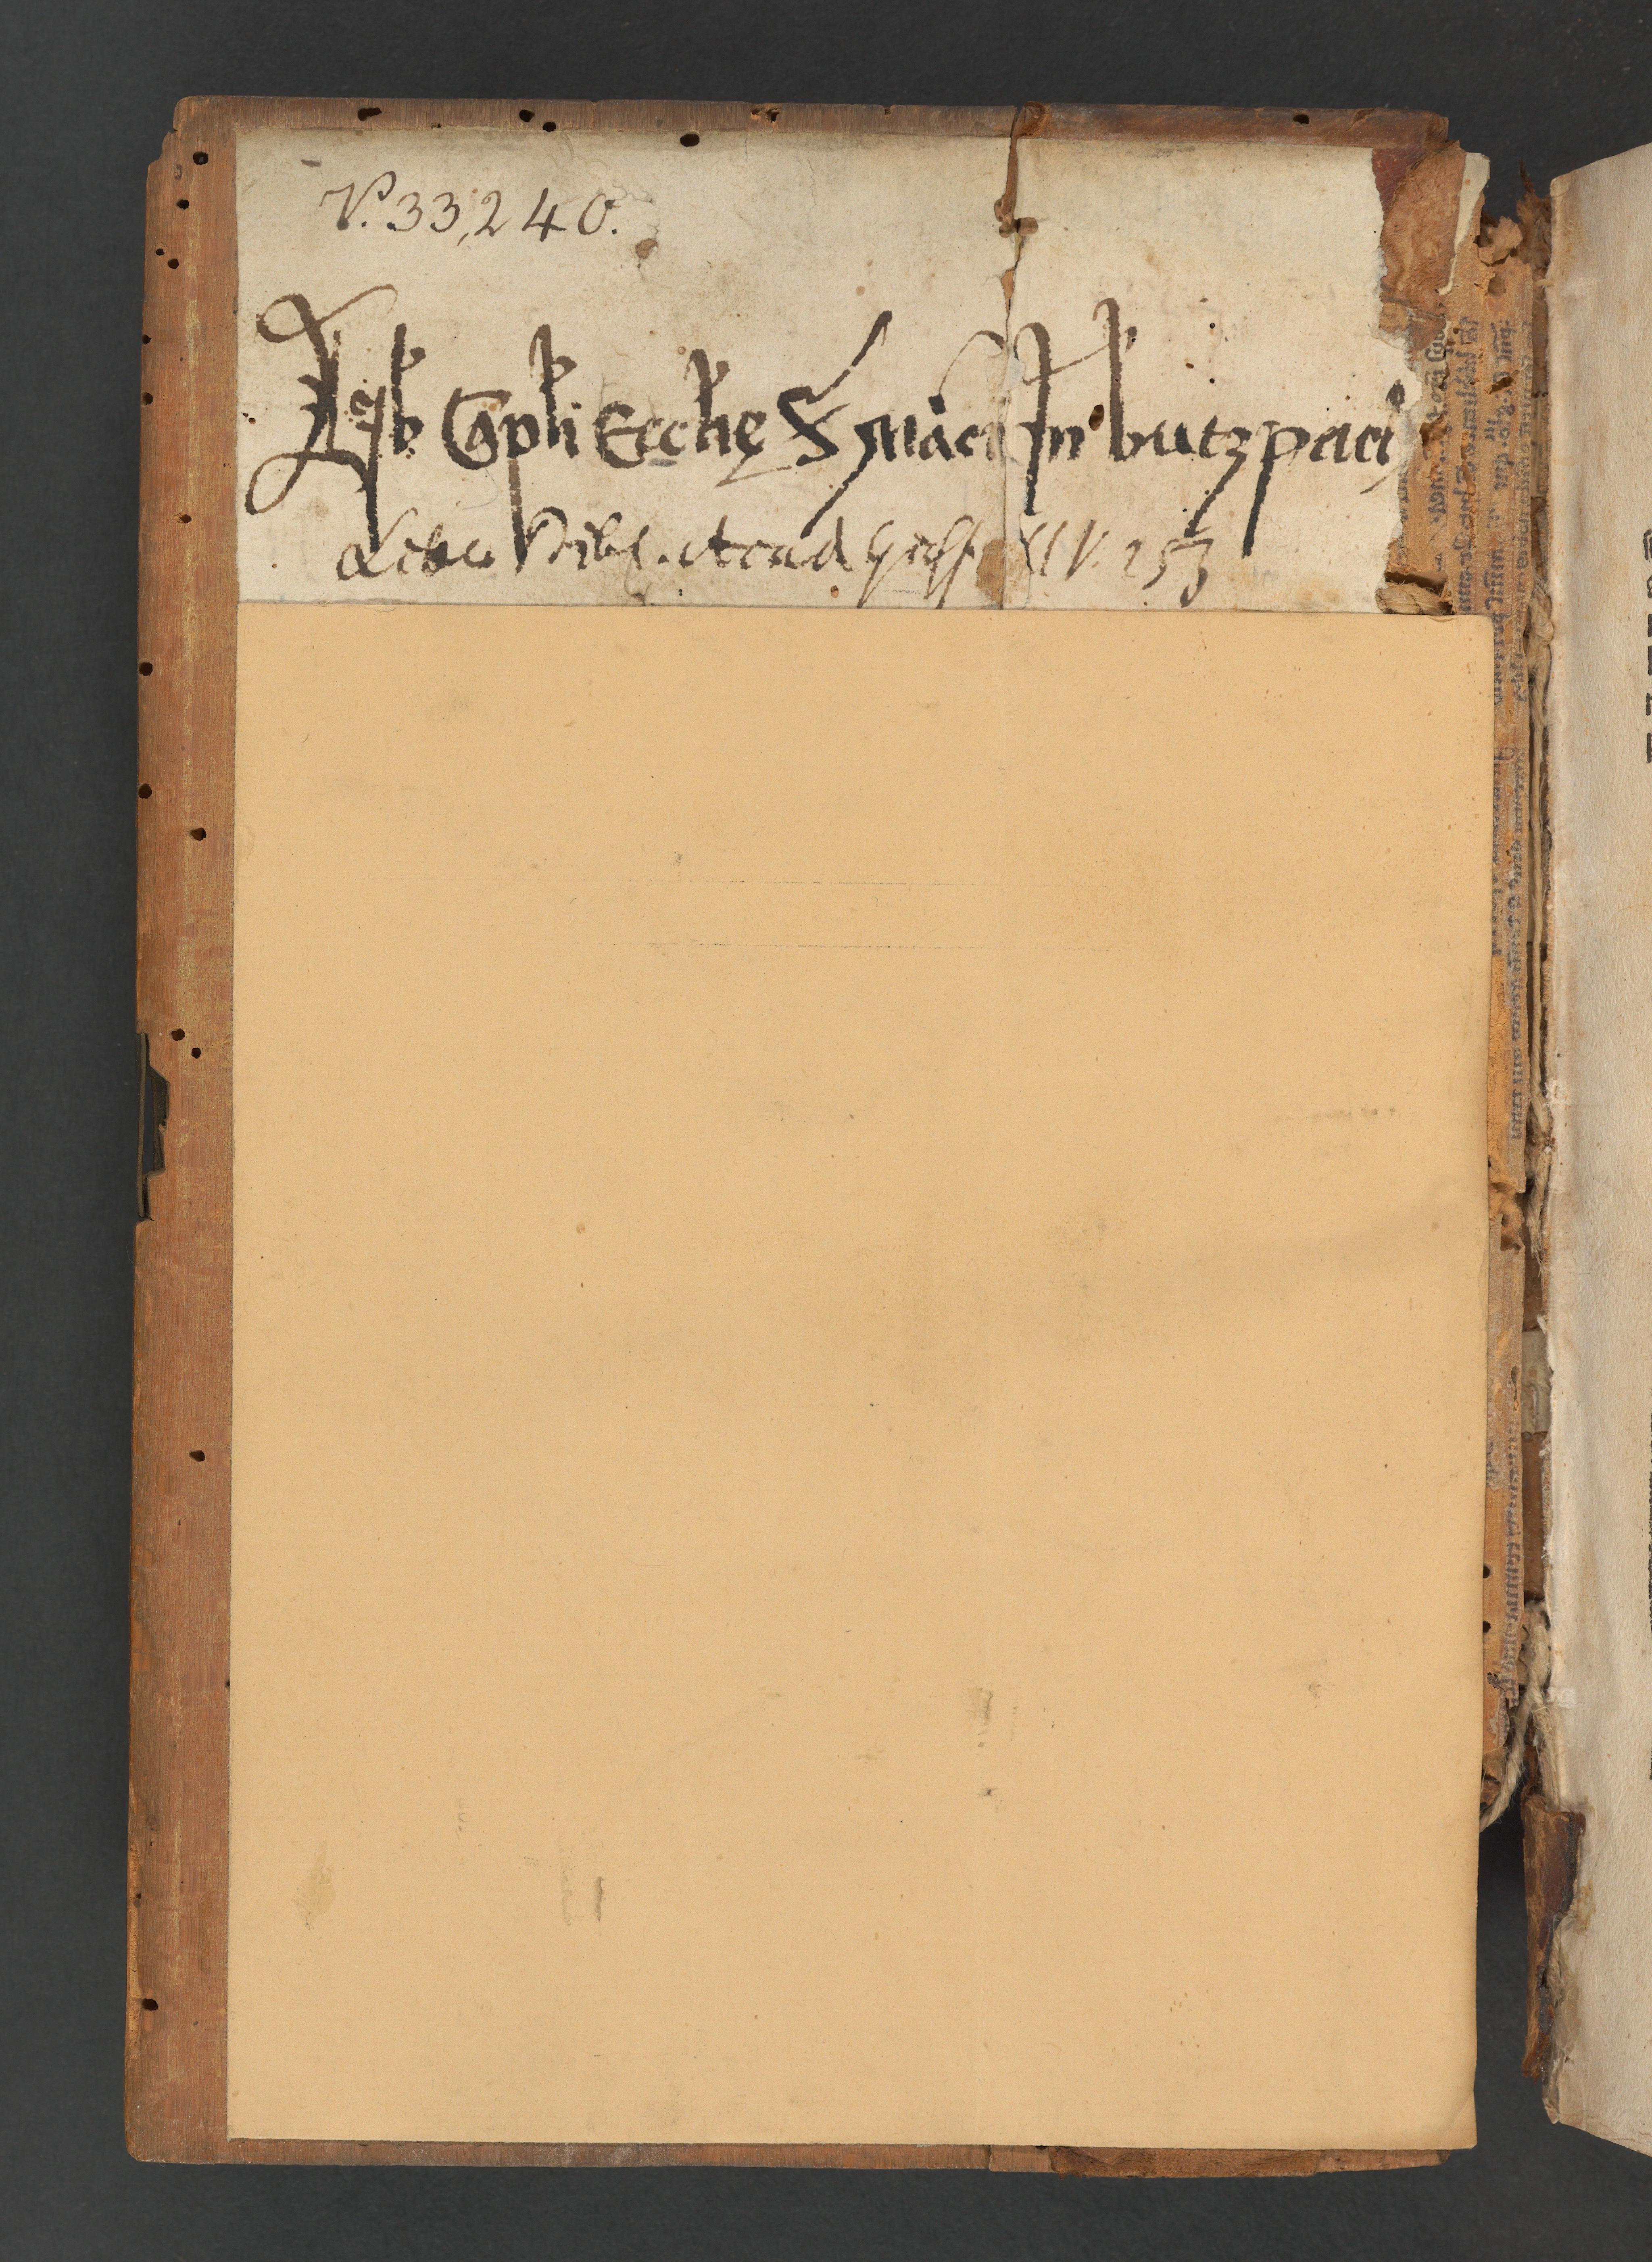 V. 33,240.
Lib̃ Capłi Ecctię S Marci In butzpach
Liber Bibl. Acad Giess XLV. 253